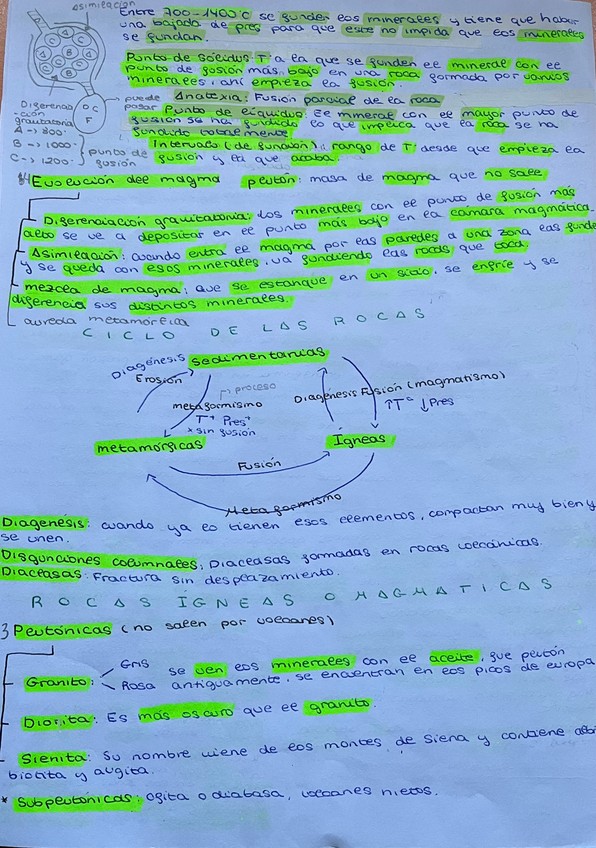 asimilación
Entre 700-1400°C se funden los minerales y tiene que haber
una bajada de pres para que este no impida que los minerales
se fundan.
Punto de sólidus: T° a la que se funden el mineral con el
punto de fusión más bajo en una roca formada por varios
minerales, ahí empieza la fusión.
puede pasar
Anatexia: Fusión parcial de la roca
Punto de líquidus: El mineral con el mayor punto de
fusión se ha fundido lo que implica que la roca se ha
fundido totalmente
Intervalo (de fundición): rango de T° desde que empieza la
fusión y la que acaba.
Diferencia
-ción
gravitatoria
A → 800°
B → 1000°
C → 1200°
punto de
fusión
A
B
C
D C
F
Evolución del magma
plutón: masa de magma que no sale
Diferenciación gravitatoria: los minerales con el punto de fusión más
alto se ve a depositar en el punto más bajo en la cámara magmática.
Asimilación: cuando entra el magma por las paredes a una zona las funde
y se queda con esos minerales, va fundiendo las rocas que toca.
mezcla de magma: que se estanque en un sitio, se enfríe y se
diferencia sus distintos minerales.
aureola metamórfica
CICLO DE LAS ROCAS
Diagénesis
Erosión
sedimentarias
proceso
metamorfismo
T+ Pres+
* sin fusión
Diagénesis
Fusión (magmatismo)
↑T° ↓Pres
metamórficas
Ígneas
Fusión
Metamorfismo
Diagénesis: cuando ya lo tienen esos elementos, compactan muy bien y
se unen.
Disyunciones columnales: Diaclasas formadas en rocas volcánicas.
Diaclasas: Fractura sin desplazamiento.
ROCAS ÍGNEAS O MAGMATICAS
Plutónicas (no salen por volcanes)
Granito:
Gris
Rosa
se ven los minerales con el aceite, fue plutón
antiguamente, se encuentran en los picos de europa
Diorita: Es más oscuro que el granito.
Sienita: Su nombre viene de los montes de Siena y contiene
biotita y augita.
* Subplutónicas: ofita o diabasa, volcanes